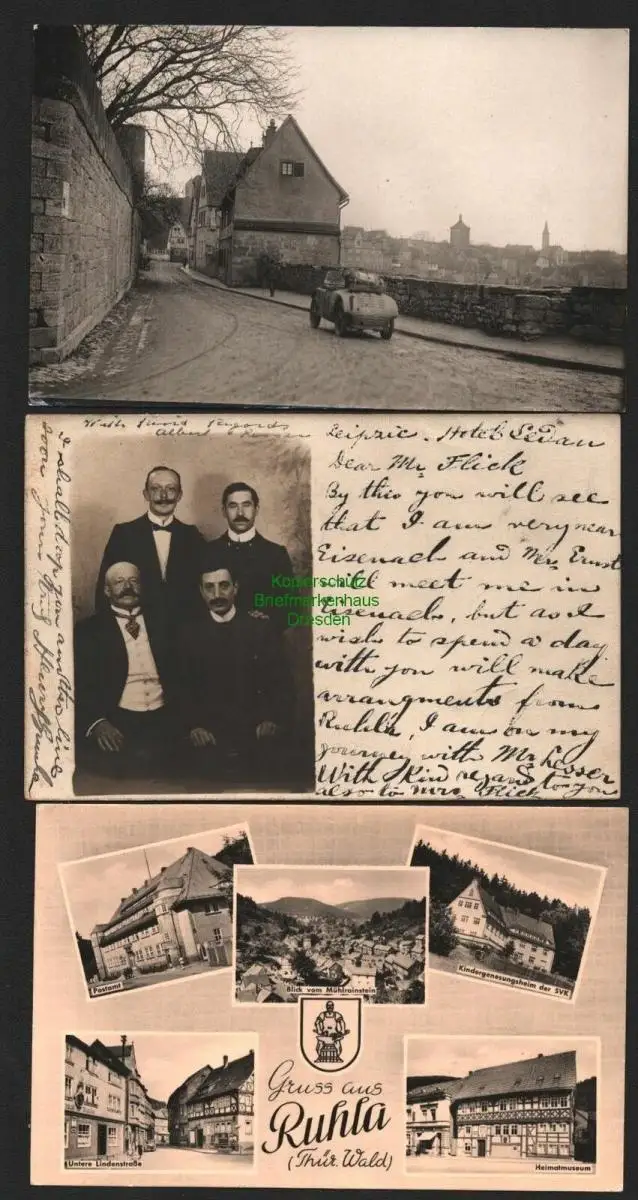 With kind regards
Albert
Leipzic. Hotel Sedan
Dear Mr. Flick
By this you will see
that I am very near
Eisenach and Mr. Ernst
will meet me in
Eisenach, but as I
wish to spend a day
with you will make
arrangments from
Ruhla, I am on my
journey with Mr Lesser
With kind regards to you
also to Mrs. Flick
I shall drop you another line
soon. Yours
Kopierschutz
Briefmarkenhaus
Dresden
Postamt
Blick vom Mühlrainstein
Kindergenesungsheim der SVK
Untere Lindenstraße
Gruss aus
Ruhla
(Thür. Wald)
Heimatmuseum